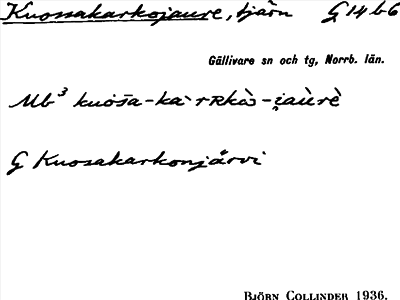 Kuossakarkojaure, tjärn G 14 b 6
Gällivare sn och tg, Norrb. län.
Mb³ kuos̄a-ka·rRkὰ-i̯aùrè
G Kuosakarkonjärvi
Björn Collinder 1936.